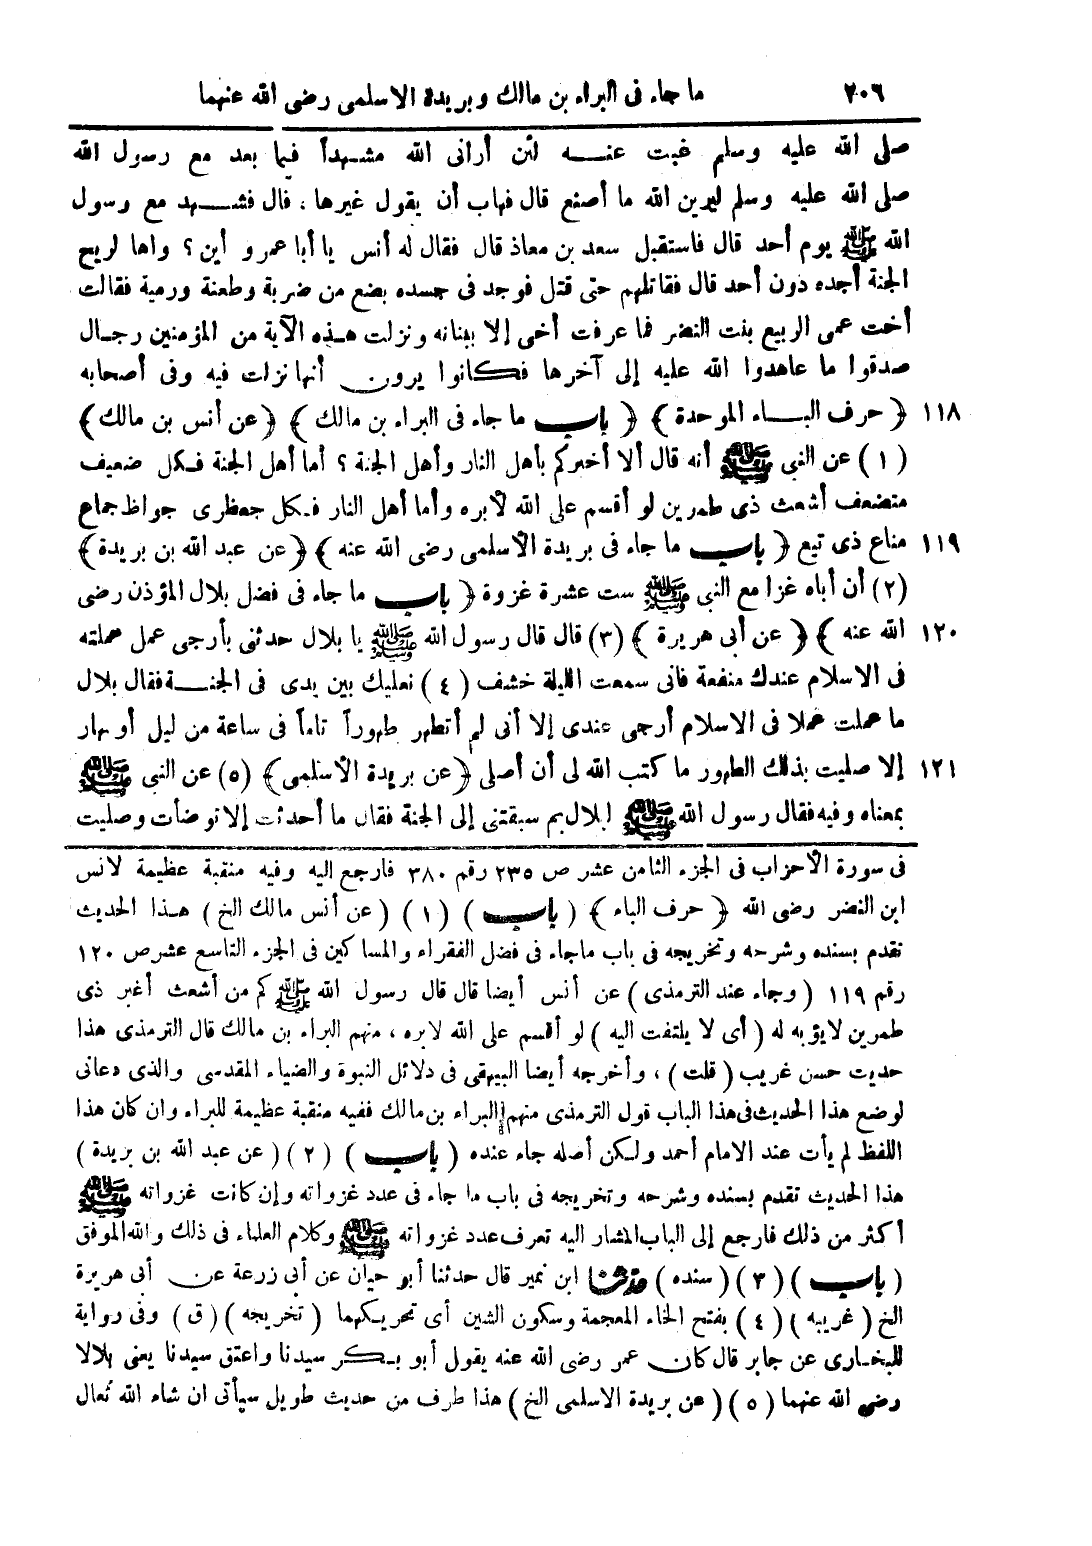 ٢٠٦ ما جاء فى البراء بن مالك وبريدة الاسلمى رضى الله عنهما
صلى الله عليه وسلم غبت عنه لئن أرانى الله مشهداً فيما بعد مع رسول الله
صلى الله عليه وسلم ليرين الله ما أصنع قال فهاب أن يقول غيرها ، قال فشهد مع رسول
الله ﷺ يوم أحد قال فاستقبل سعد بن معاذ قال فقال له أنس يا أبا عمرو أين ؟ واها لريح
الجنة أجده دون أحد قال فقاتلهم حتى قتل فوجد فى جسده بضع من ضربة وطعنة ورمية فقالت
أخت عمى الربيع بنت النضر فما عرفت أخى إلا ببنانه ونزلت هذه الآية من المؤمنين رجال
صدقوا ما عاهدوا الله عليه إلى آخرها فكانوا يرون أنها نزلت فيه وفى أصحابه
١١٨ ﴿ حرف الباء الموحدة ﴾ ﴿ باب ما جاء فى البراء بن مالك ﴾ ﴿ عن أنس بن مالك ﴾
(١) عن النبى ﷺ أنه قال ألا أخبركم بأهل النار وأهل الجنة ؟ أما أهل الجنة فكل ضعيف
متضعف أشعث ذى طمرين لو أقسم على الله لأبره وأما أهل النار فكل جعظرى جواظ جماع
١١٩ مناع ذى تبع ﴿ باب ما جاء فى بريدة الأسلمى رضى الله عنه ﴾ ﴿ عن عبد الله بن بريدة ﴾
(٢) أن أباه غزا مع النبى ﷺ ست عشرة غزوة ﴿ باب ما جاء فى فضل بلال المؤذن رضى
١٢٠ الله عنه ﴾ ﴿ عن أبى هريرة ﴾ (٣) قال قال رسول الله ﷺ يا بلال حدثنى بأرجى عمل عملته
فى الاسلام عندك منفعة فانى سمعت الليلة خشف (٤) نعليك بين يدى فى الجنة فقال بلال
ما عملت عملا فى الاسلام أرجى عندى إلا أنى لم أتطهر طهوراً تاماً فى ساعة من ليل أو نهار
١٢١ إلا صليت بذلك الطهور ما كتب الله لى أن أصلى ﴿ عن بريدة الأسلمى ﴾ (٥) عن النبى ﷺ
بمعناه وفيه فقال رسول الله ﷺ لبلال بم سبقتنى إلى الجنة فقال ما أحدثت إلا توضأت وصليت
فى سورة الأحزاب فى الجزء الثامن عشر ص ٢٣٥ رقم ٣٨٠ فارجع اليه وفيه منقبة عظيمة لانس
ابن النضر رضى الله ﴿ حرف الباء ﴾ ( باب ) (١) ( عن أنس مالك الخ ) هذا الحديث
تقدم بسنده وشرحه وتخريجه فى باب ما جاء فى فضل الفقراء والمساكين فى الجزء التاسع عشر ص ١٢٠
رقم ١١٩ ( وجاء عند الترمذى ) عن أنس أيضا قال قال رسول الله ﷺ كم من أشعث أغبر ذى
طمرين لا يؤبه له ( أى لا يلتفت اليه ) لو أقسم على الله لابره ، منهم البراء بن مالك قال الترمذى هذا
حديث حسن غريب ( قلت ) ، وأخرجه أيضا البيهقى فى دلائل النبوة والضياء المقدسى والذى دعانى
لوضع هذا الحديث فى هذا الباب قول الترمذى منهم البراء بن مالك ففيه منقبة عظيمة للبراء وان كان هذا
اللفظ لم يأت عند الامام أحمد ولكن أصله جاء عنده ( باب ) (٢) ( عن عبد الله بن بريدة )
هذا الحديث تقدم بسنده وشرحه وتخريجه فى باب ما جاء فى عدد غزواته وإن كانت غزواته ﷺ
أكثر من ذلك فارجع إلى الباب المشار اليه تعرف عدد غزواته ﷺ وكلام العلماء فى ذلك والله الموفق
( باب ) (٣) ( سنده ) حدثنا ابن نمير قال حدثنا أبو حيان عن أبى زرعة عن أبى هريرة
الخ ( غريبه ) (٤) بفتح الخاء المعجمة وسكون الشين أى تحريكهما ( تخريجه ) (ق) وفى رواية
للبخارى عن جابر قال كان عمر رضى الله عنه يقول أبو بكر سيدنا واعتق سيدنا يعنى بلالا
رضى الله عنهما (٥) ( عن بريدة الاسلمى الخ ) هذا طرف من حديث طويل سيأتى ان شاء الله تعال